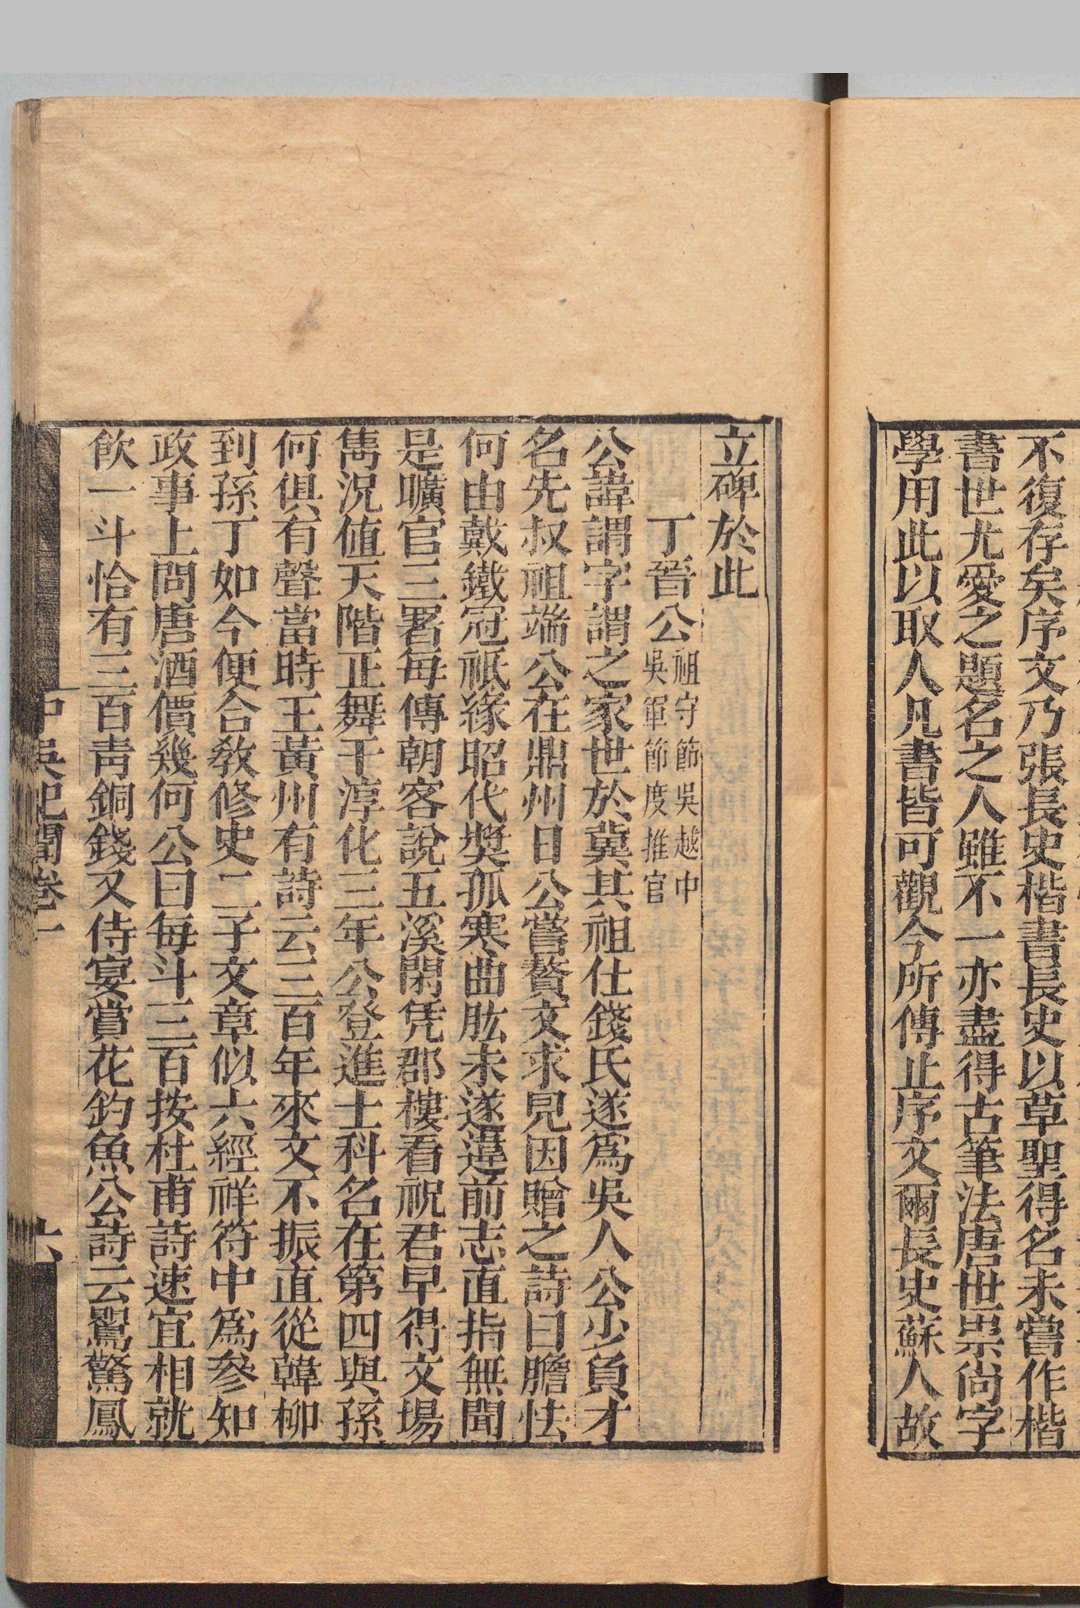 不復存矣序文乃張長史楷書長史以草聖得名未嘗作楷
書世尤愛之題名之人雖不一亦盡得古筆法唐世崇尚字
學用此以取人凡書皆可觀今所傳止序文爾長史蘇人故
立碑於此
丁晉公祖守節吳越中
吳軍節度推官
公諱謂字謂之家世於冀其祖仕錢氏遂爲吳人公少負才
名先叔祖端公在鼎州日公嘗贄文求見因贈之詩曰膽怯
何由戴鐵冠祇緣昭代奬孤寒曲肱未遂違前志直指無聞
是曠官三署每傳朝客說五溪閑凭郡樓看祝君早得文場
雋況値天階正舞干淳化三年公登進士科名在第四與孫
何俱有聲當時王黃州有詩云三百年來文不振直從韓柳
到孫丁如今便合敎修史二子文章似六經祥符中爲參知
政事上問唐酒價幾何公曰每斗三百按杜甫詩速宜相就
飮一斗恰有三百靑銅錢又侍宴賞花釣魚公詩云鶯驚鳳
中吳紀聞卷一
六